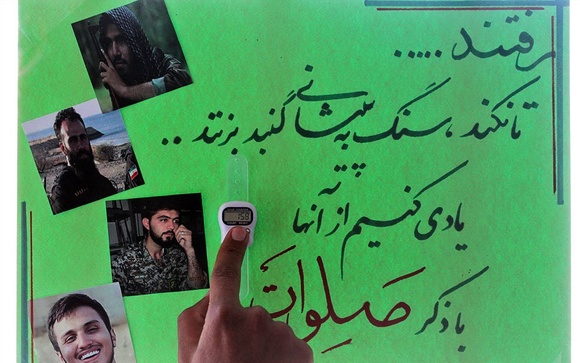 رفتند .....
تا نکند ، سنگ به پیشانی گنبد بزنند ..
یادی کنیم از آنها
با ذکر صلوات